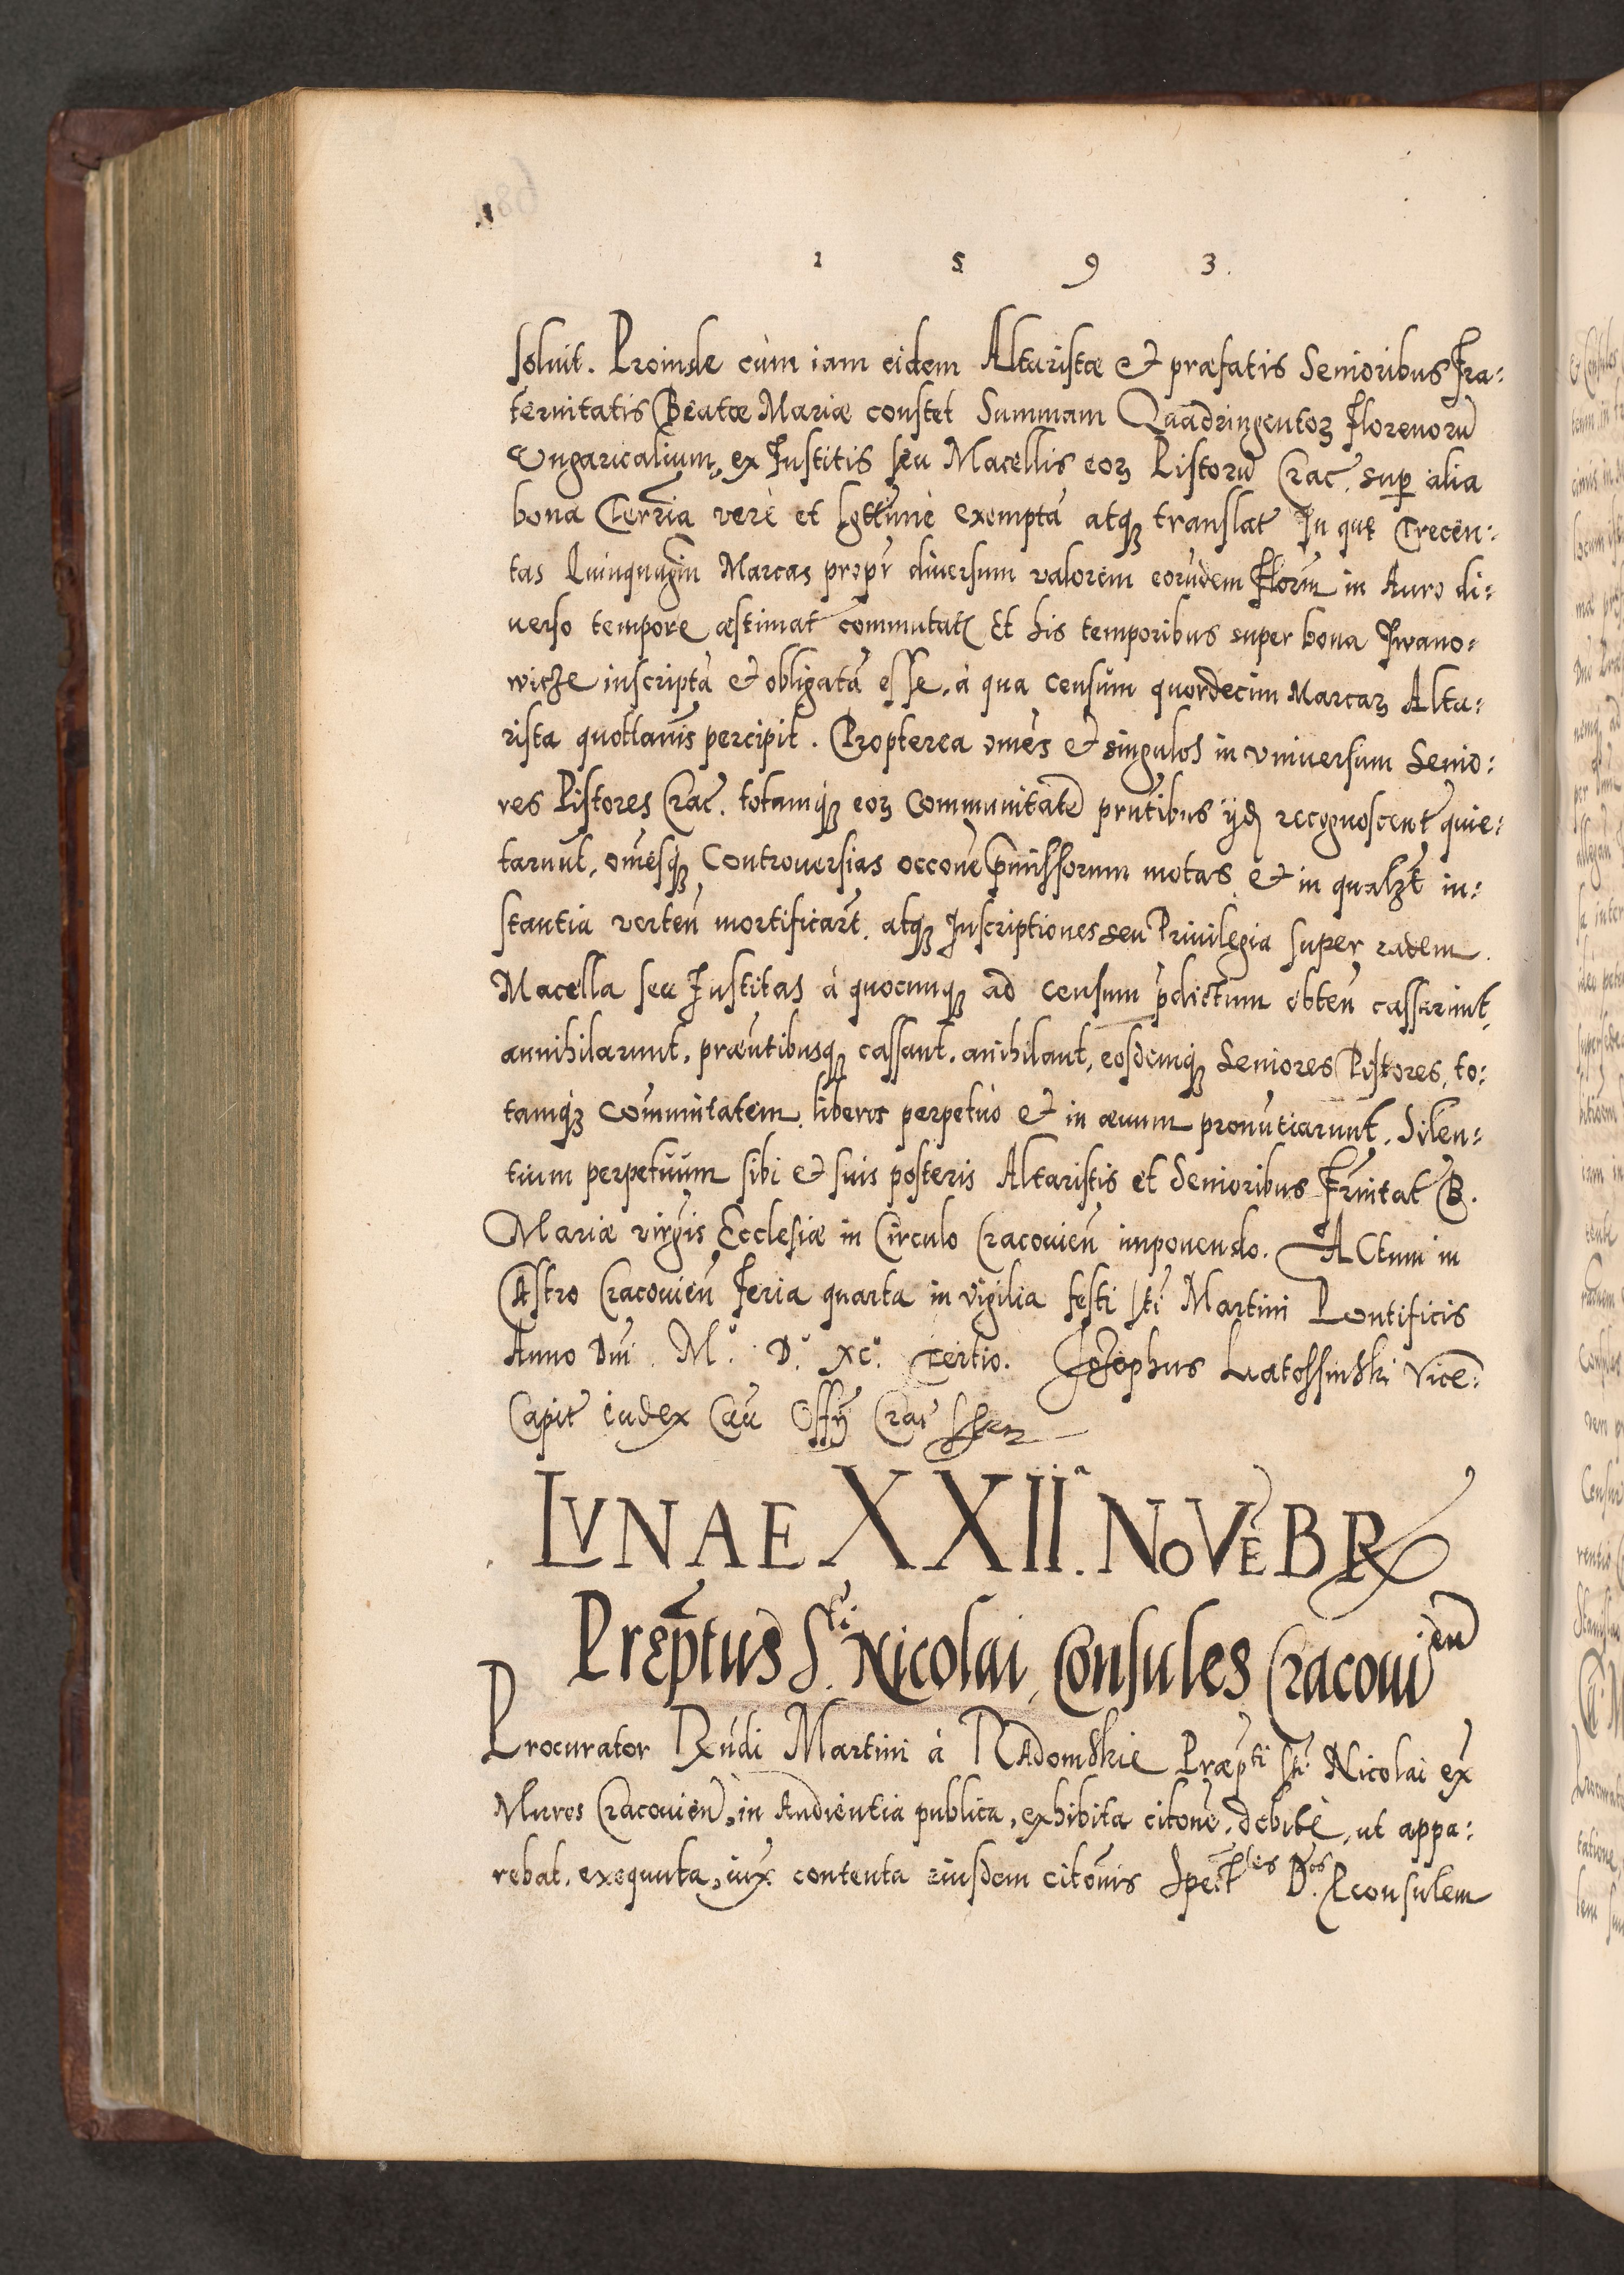 1 5 9 3.
soluit. Proinde cùm iam eidem Altaristæ & præfatis Senioribus Fra:
ternitatis Beatæ Mariæ constet Summam Quadringentoꝝ Florenorū
Vngaricalium, ex Institis seu Macellis eoꝝ Pistorū Crac̃. sup̱ alia
bona Terrīa verè et lg̃ttimè exemptã atqꝫ translat̃ In que Trecen:
tas Quinquagīn Marcas propt̃ diuersum valorem eorūdem Florīn in Auro di:
uerso tempore æstimat̃ commutatꝫ Et his temporibus super bona Iwano:
wicze inscriptã & obligatã esse, à qua Censum quordecim Marcaꝝ Alta:
rista quottannis percipit. Propterea om̃es & singulos in vniuersum Senio:
res Pistores Crac̃. totamqꝫ eoꝝ Communitatẽ pn̄tibus ijdꝫ recognoscent̃ quie:
tarunt, om̃esqꝫ Controuersias occõne p̃missorum motas & in qualꝫt in:
stantia verten̄ mortificarũt. atqꝫ Inscriptiones seu Priuilegia super eadem
Macella seu Institas à quocunqꝫ ad censum p̃dictum obten̄ cassarunt,
annihilarunt, præn̄tibusqꝫ cassant, anihilant, eosdemqꝫ Seniores Pistores, to:
tamqꝫ Com̃unitatem liberos perpetuò & in æuum pronũtiarunt. Silen:
tium perpetuum sibi & suis posteris Altaristis et Senioribus Frñitat̃ B.
Mariæ virg̃is Ecclesiæ in Circulo Cracouien̄ imponendo. ACtum in
CAstro Cracouien̄ Feria quarta in vigilia festi Sti Martini Pontificis
Anno Dn̄i. M.º D.º XC.º Tertio. Josephus Latossinski Vice:
Capit̃ iudex Cau̅ Offÿ Crac̃
LVNAE XXII.ª NOVẼBR
Prep̄tus S.ti Nicolai, Consules Cracouien̄
Procurator Rñdi Martini à RAdomskie Præp̄ti Sti Nicolai ex
Muros Cracouien̄, in Audientia publica, exhibita citõne, debitè, ut appa:
rebat, exequuta, iux̃ contenta eiusdem citõnis Spect̃les D.nos Pconsulem